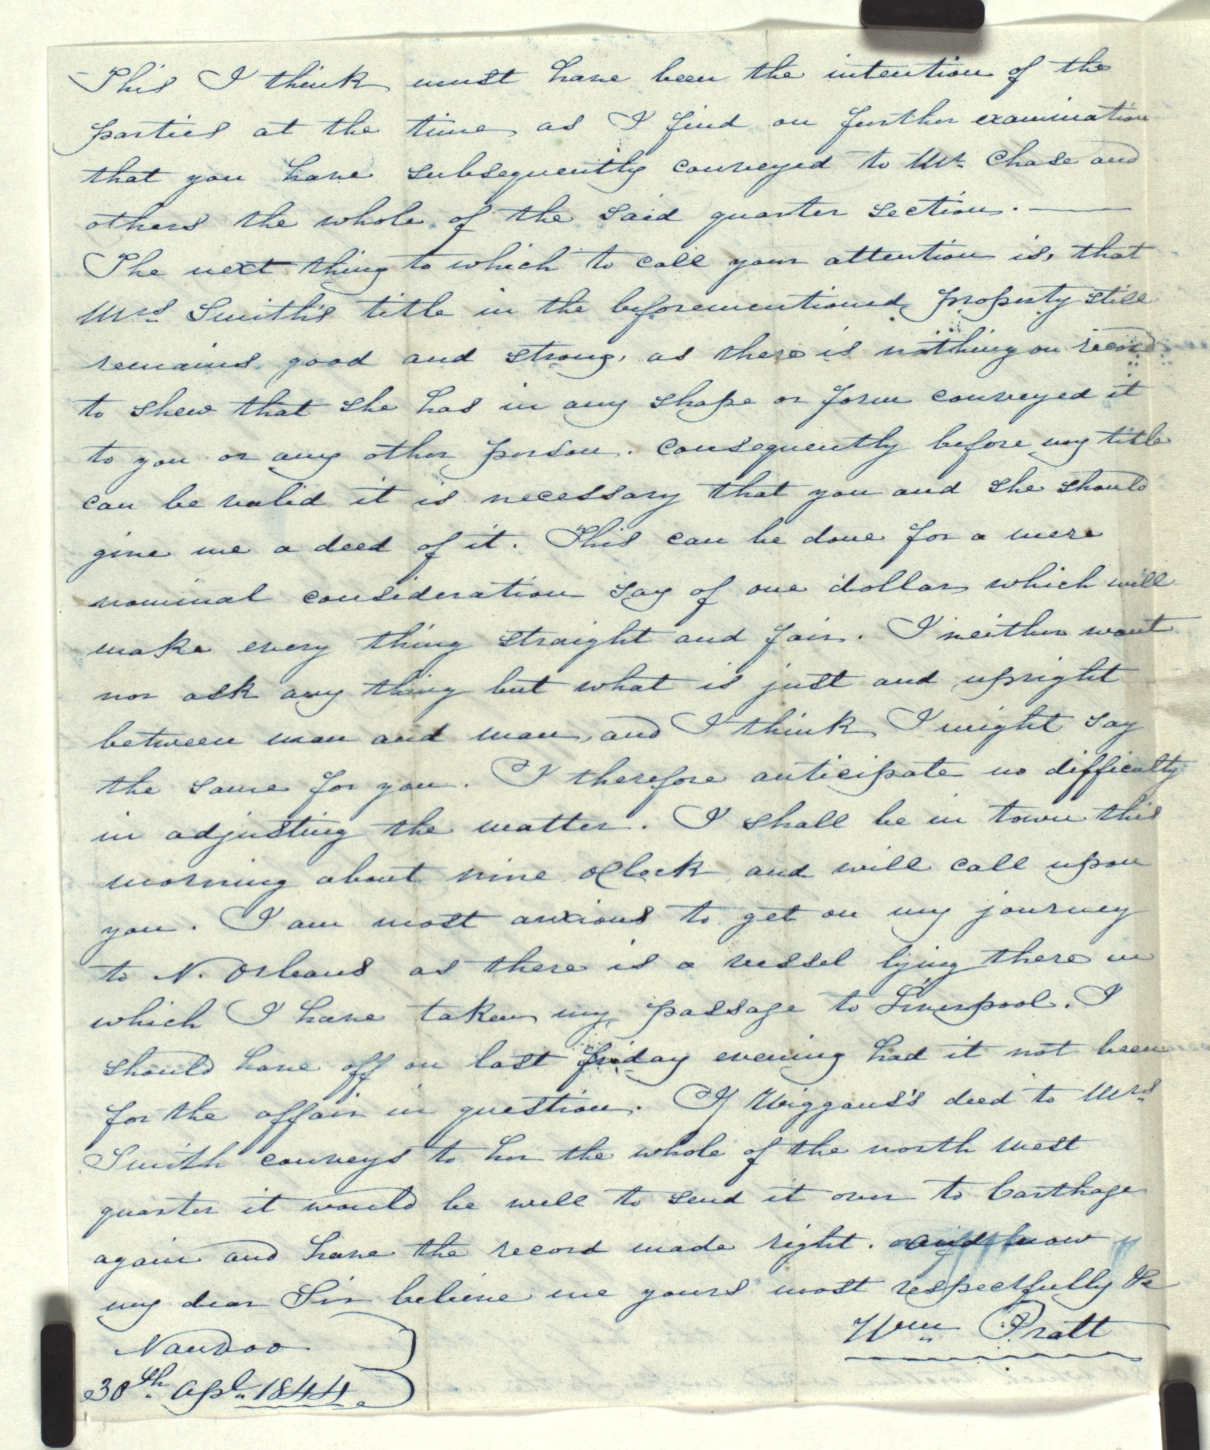 This I think must have been the intention of the
parties at the time, as I find on further examination
that you have subsequently conveyed to Mr. Chase and
others the whole of the said quarter section. —
The next thing to which to call your attention is, that
Mrs Smith's title in the beforementioned property still
remains good and strong, as there is nothing on record
to shew that she has in any shape or form conveyed it
to you or any other person. Consequently before my title
can be valid it is necessary that you and she should
give me a deed of it. This can be done for a mere
nominal consideration say of one dollar which will
make every thing straight and fair. I neither want
nor ask any thing but what is just and upright
between man and man, and I think I might say
the same for you. I therefore anticipate no difficulty
in adjusting the matter. I shall be in town this
morning about nine oClock and will call upon
you. I am most anxious to get on my journey
to N. Orleans as there is a vessel lying there in
which I have taken my passage to Liverpool. I
should have off on last friday evening had it not been
for the affair in question. If Wiggans's deed to Mrs
Smith conveys to her the whole of the north west
quarter it would be well to send it over to Carthage
again and have the record made right. and
my dear Sir believe me yours most respectfully &c
Wm Pratt
Nauvoo
30th Apl. 1844.